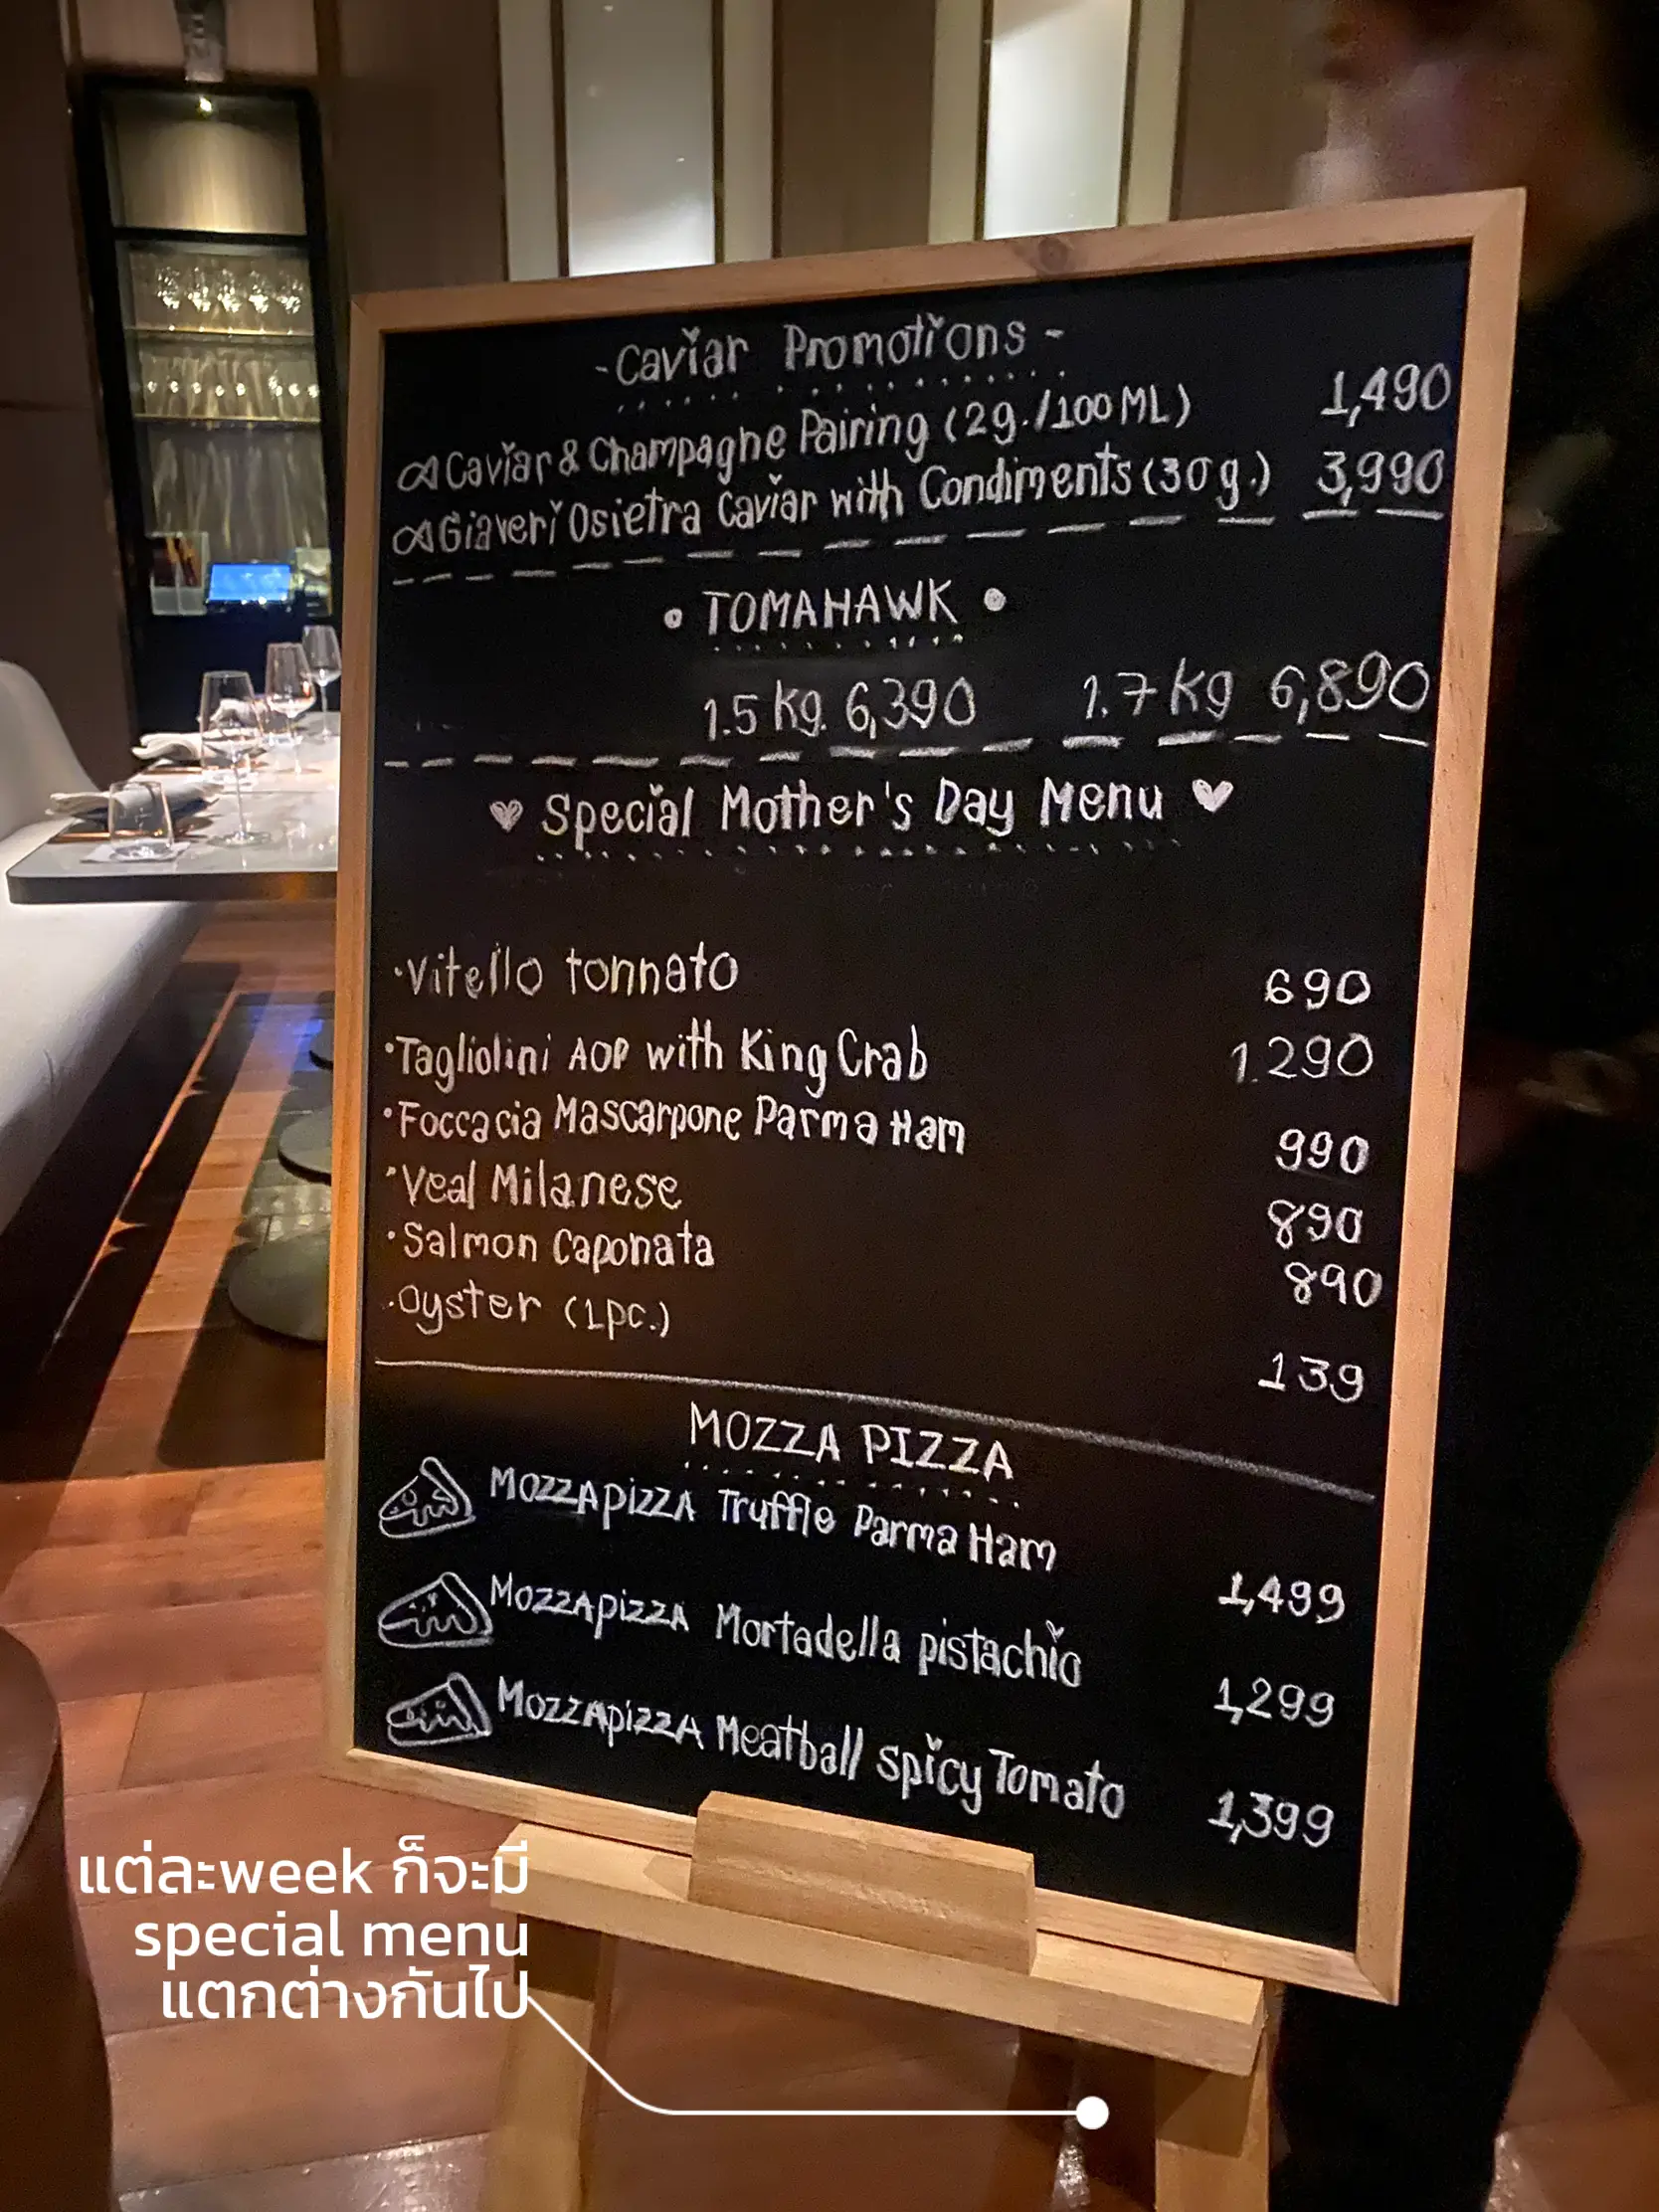 - Caviar Promotions -
Caviar & Champagne Pairing (2g./100ML) 1,490
Giaveri Osietra Caviar with Condiments (30g.) 3,990
• TOMAHAWK •
1.5 kg. 6,390 1.7 kg 6,890
♥ Special Mother's Day Menu ♥
·Vitello tonnato 690
·Tagliolini AOP with King Crab 1.290
·Foccacia Mascarpone Parma Ham 990
·Veal Milanese 890
·Salmon Caponata 890
·Oyster (1pc.) 139
MOZZA PIZZA
MOZZAPIZZA Truffle Parma Ham 1,499
MOZZAPIZZA Mortadella pistachio 1,299
MOZZAPIZZA Meatball spicy Tomato 1,399
แต่ละweek ก็จะมี
special menu
แตกต่างกันไป